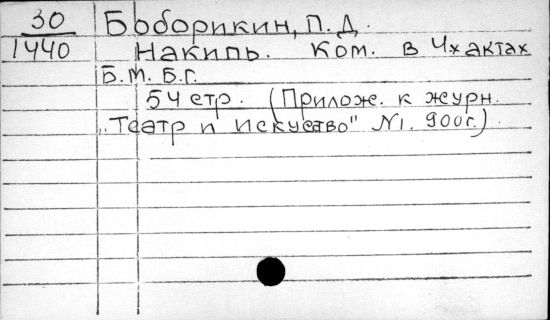 30
1440
Боборикин, П. Д.
Накипь. Ком. в 4х актах
Б. М. Б. Г.
54 стр. (Прилож. к журн.
„Театр и искуство" N1. 900г.)